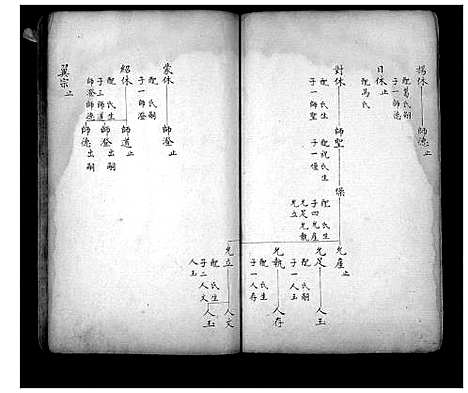 揚休
師德
止
配葛氏嗣
子一師德
日休
止
配萬氏
對休
師聖
配氏生
子一師聖
配祝氏生
子一愫
配氏生
子四允產
允足允執
允立
允產
止
允足
人玉
配氏嗣
子一人玉
允執
人存
配氏生
子一人存
允立
人文
人玉
配氏生
子二人文
人玉
蒙休
師澄
止
配氏嗣
子一師澄
紹休
師道
止
師澄出嗣
師德出嗣
配氏生
子三師道
師澄師德
翼宗
止